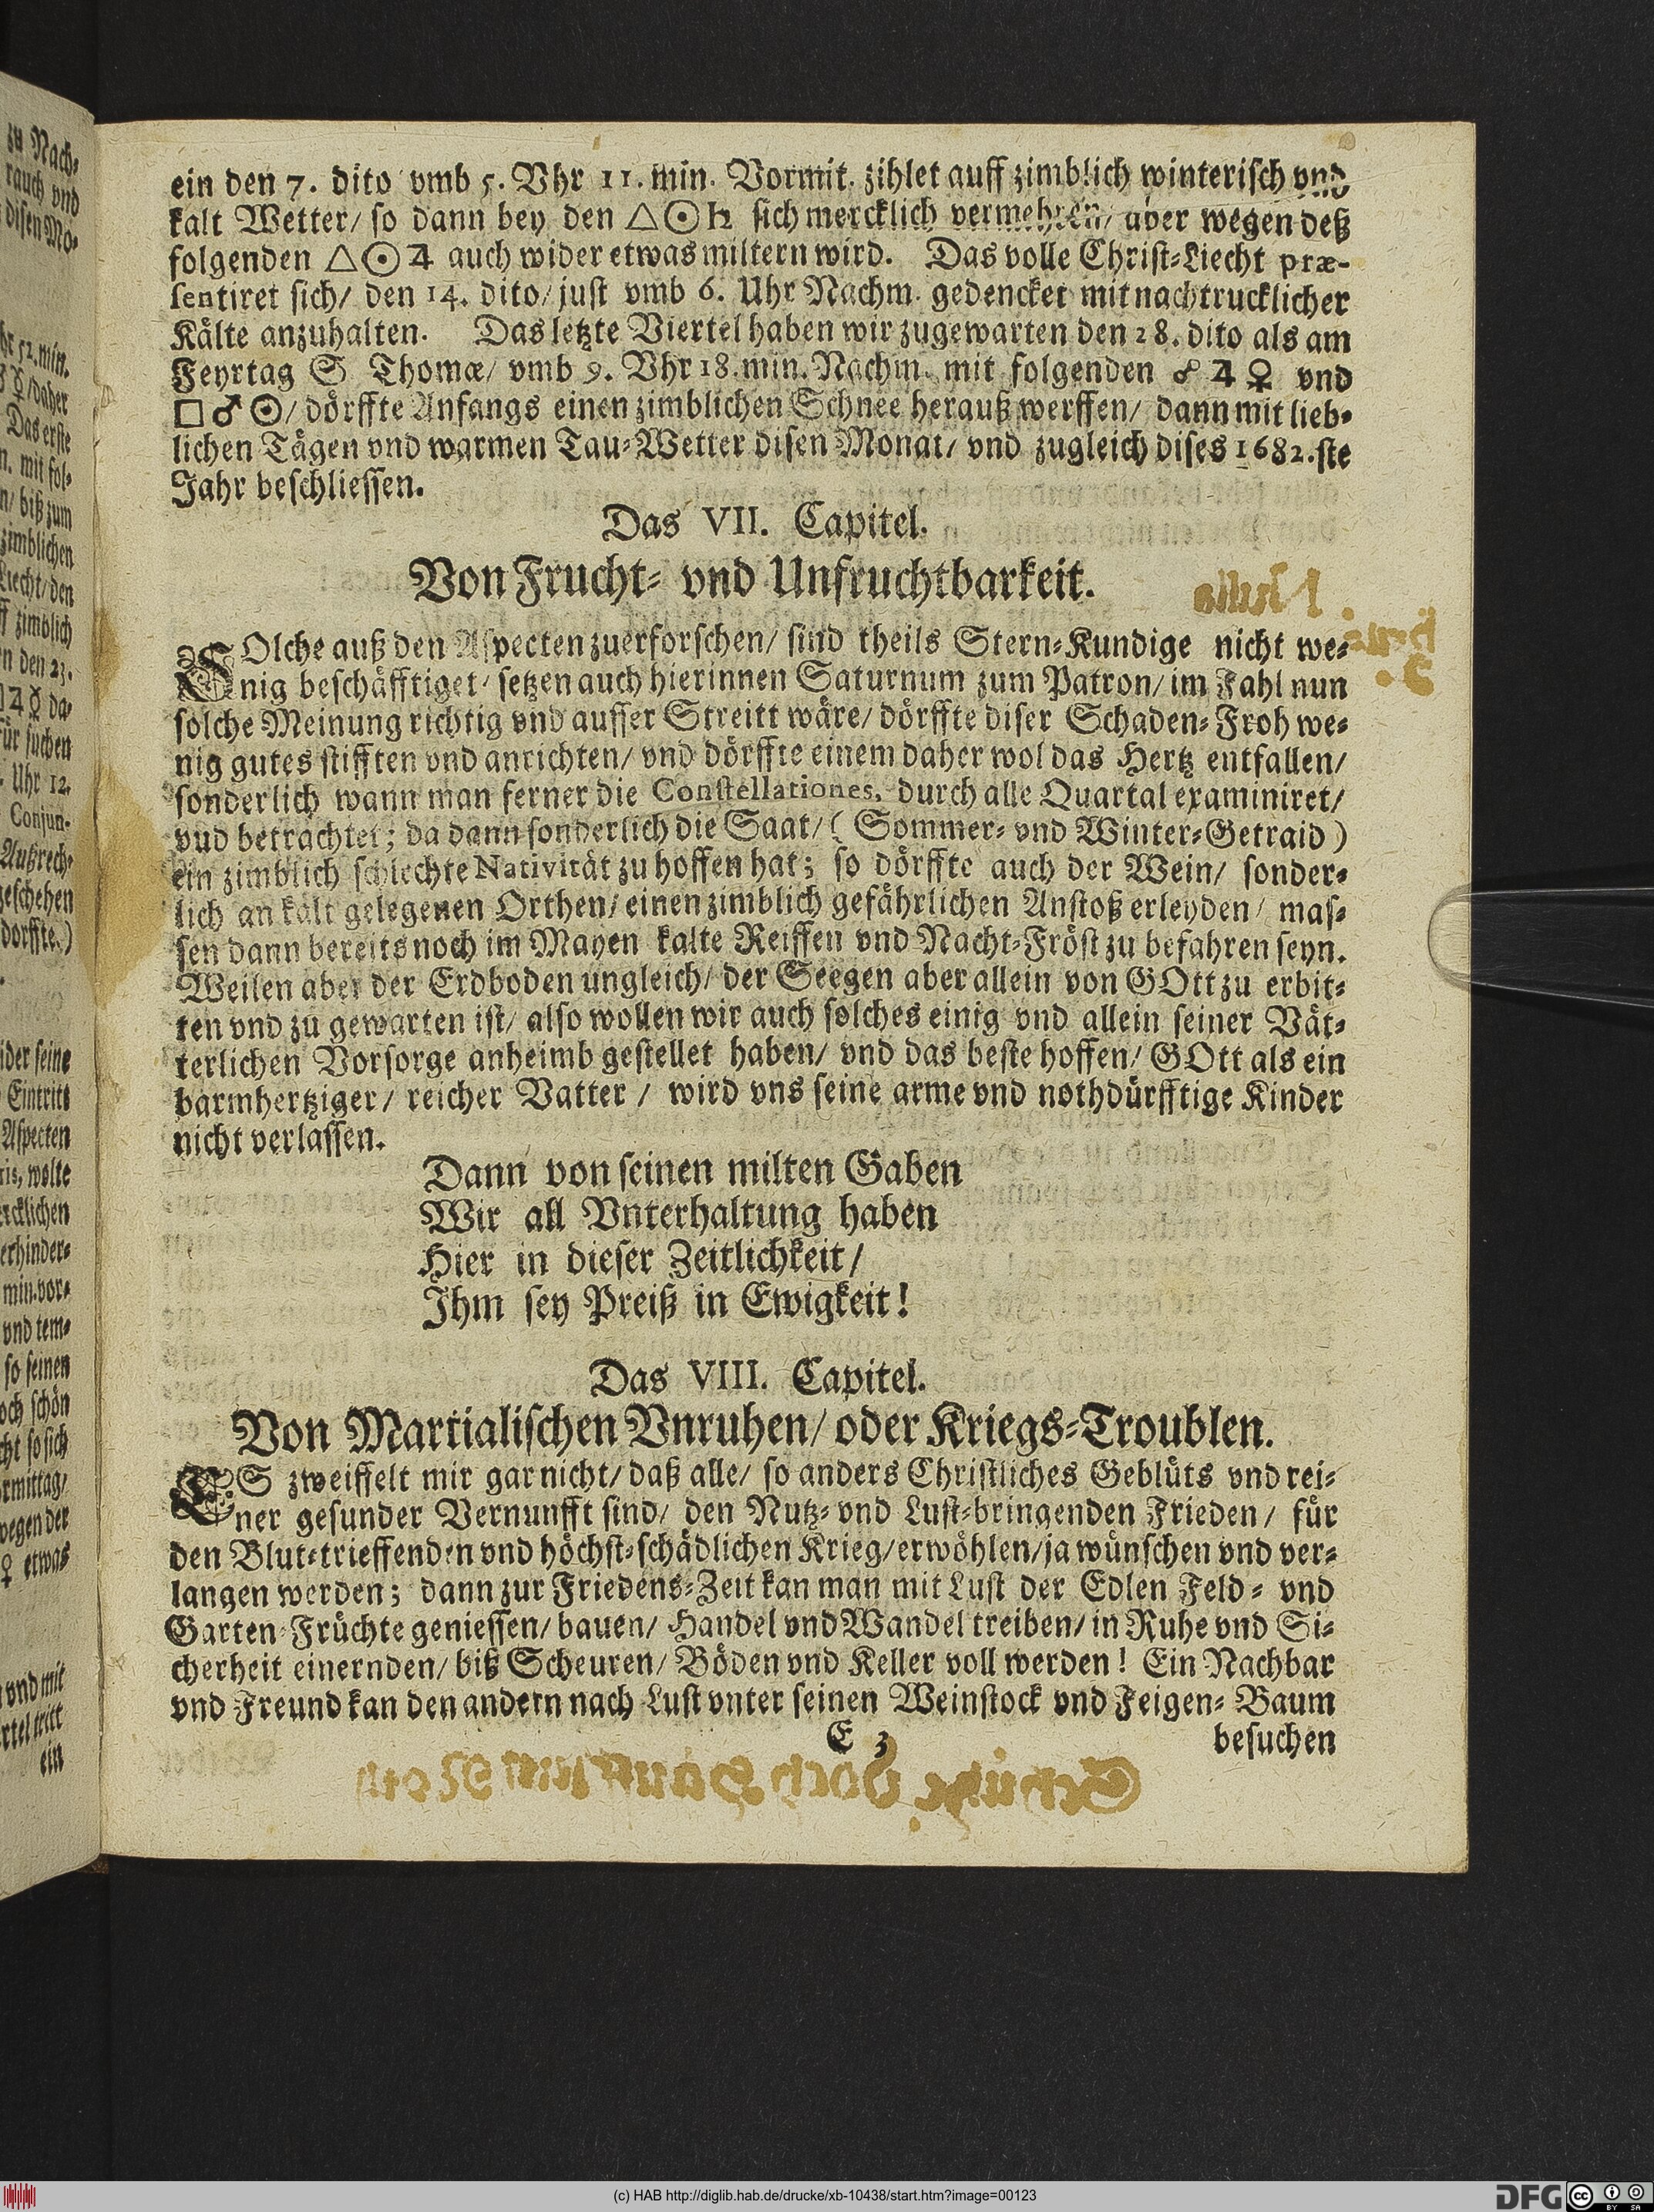 ein den 7. dito vmb 5. Vhr 11. min. Vormit. zihlet auff zimblich winterisch vnd
kalt Wetter/ so dann bey den △☉♄ sich mercklich vermehren/ aber wegen deß
folgenden △☉♃ auch wider etwas miltern wird. Das volle Christ-Liecht præ-
sentiret sich/ den 14. dito/ just vmb 6. Uhr Nachm. gedencket mit nachtrucklicher
Kälte anzuhalten. Das letzte Viertel haben wir zugewarten den 28. dito als am
Feyrtag S Thomæ/ vmb 9. Vhr 18. min. Nachm. mit folgenden ☍ ♃ ♀ vnd
□ ♂ ☉/ dörffte Anfangs einen zimblichen Schnee herauß werffen/ dann mit lieb-
lichen Tägen vnd warmen Tau-Wetter disen Monat/ vnd zugleich dises 1682.ste
Jahr beschliessen.
Das VII. Capitel.
Von Frucht- vnd Unfruchtbarkeit.
SOlche auß den Aspecten zuerforschen/ sind theils Stern-Kundige nicht we-
nig beschäfftiget/ setzen auch hierinnen Saturnum zum Patron/ im Fahl nun
solche Meinung richtig vnd ausser Streitt wäre/ dörffte diser Schaden-Froh we-
nig gutes stifften vnd anrichten/ vnd dörffte einem daher wol das Hertz entfallen/
sonderlich wann man ferner die Constellationes, durch alle Quartal examiniret/
vud betrachtet; da dann sonderlich die Saat/ ( Sommer- vnd Winter-Getraid )
ein zimblich schlechte Nativität zu hoffen hat; so dörffte auch der Wein/ sonder-
lich an kalt gelegenen Orthen/ einen zimblich gefährlichen Anstoß erleyden/ mas-
sen dann bereits noch im Mayen kalte Reiffen vnd Nacht-Fröst zu befahren seyn.
Weilen aber der Erdboden ungleich/ der Seegen aber allein von GOtt zu erbit-
ten vnd zu gewarten ist/ also wollen wir auch solches einig vnd allein seiner Vät-
terlichen Vorsorge anheimb gestellet haben/ vnd das beste hoffen/ GOtt als ein
barmhertziger/ reicher Vatter / wird vns seine arme vnd nothdürfftige Kinder
nicht verlassen.
Dann von seinen milten Gaben
Wir all Vnterhaltung haben
Hier in dieser Zeitlichkeit/
Ihm sey Preiß in Ewigkeit!
Das VIII. Capitel.
Von Martialischen Vnruhen/ oder Kriegs-Troublen.
ES zweiffelt mir gar nicht/ daß alle/ so anders Christliches Geblüts vnd rei-
ner gesunder Vernunfft sind/ den Nutz- vnd Lust-bringenden Frieden / für
den Blut-trieffenden vnd höchst-schädlichen Krieg/ erwöhlen/ ja wünschen vnd ver-
langen werden; dann zur Friedens-Zeit kan man mit Lust der Edlen Feld - vnd
Garten-Früchte geniessen/ bauen/ Handel vnd Wandel treiben/ in Ruhe vnd Si-
cherheit einernden/ biß Scheuren/ Böden vnd Keller voll werden! Ein Nachbar
vnd Freund kan den andern nach Lust vnter seinen Weinstock vnd Feigen-Baum
E 3 besuchen
(c) HAB http://diglib.hab.de/drucke/xb-10438/start.htm?image=00123
DFG
cc
BY SA